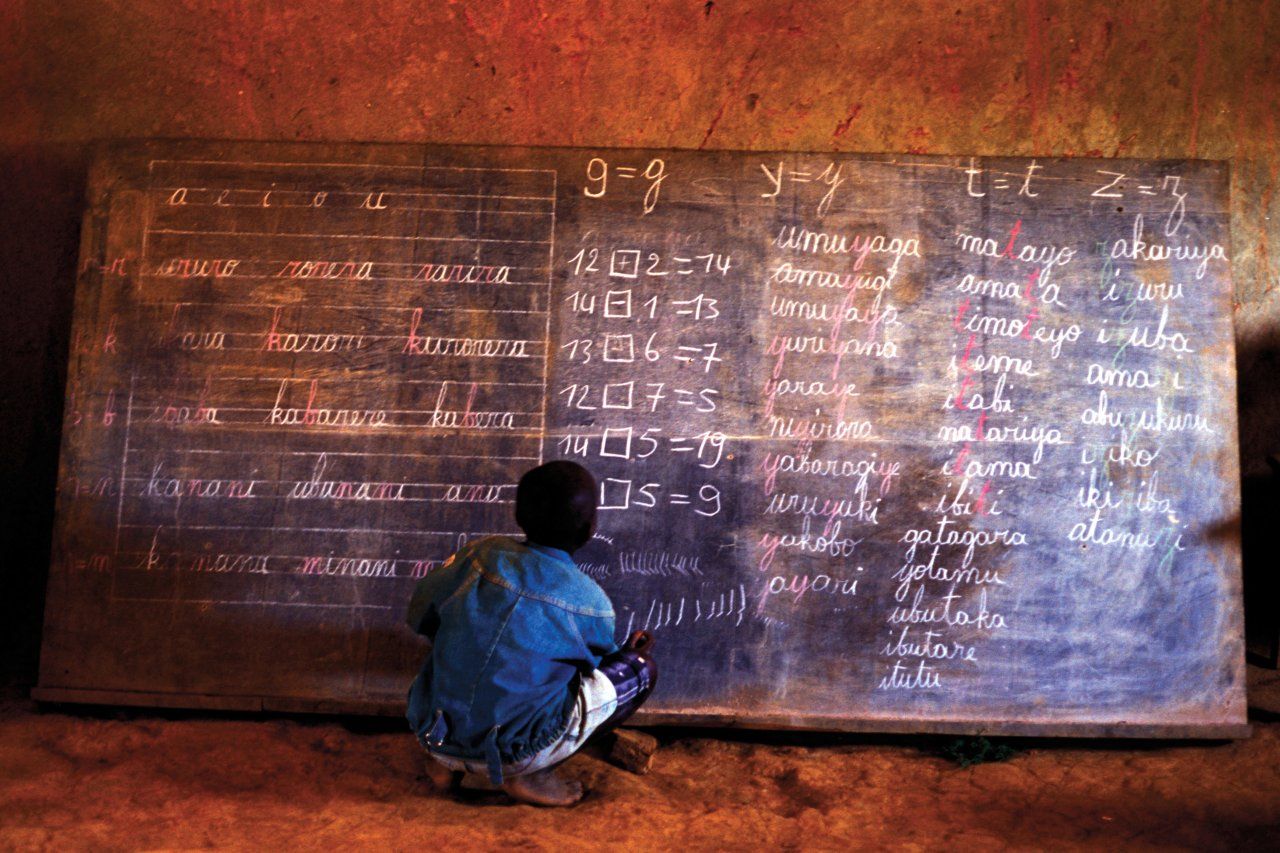 a e i o u
ururo ronera rarira
karori kurorera
kabarere kabera
kanani ubunani
minani
g=g
12 + 2=14
14 - 1=13
13 - 6=7
12 □ 7=5
14 □ 5=19
□ 5=9
y=y
umuyaga
amayugi
umuyaya
ywuyana
yaraye
nigirona
yabaragiye
uruyuki
yakobo
yayari
t=t
matayo
amata
timoteyo
iteme
itabi
natariya
itama
ibiti
gatagara
yotamu
ubutaka
ibutare
itutu
z=z
zakariya
izuru
izuba
ama i
abuzukuru
iziko
ikiziba
atanuzi